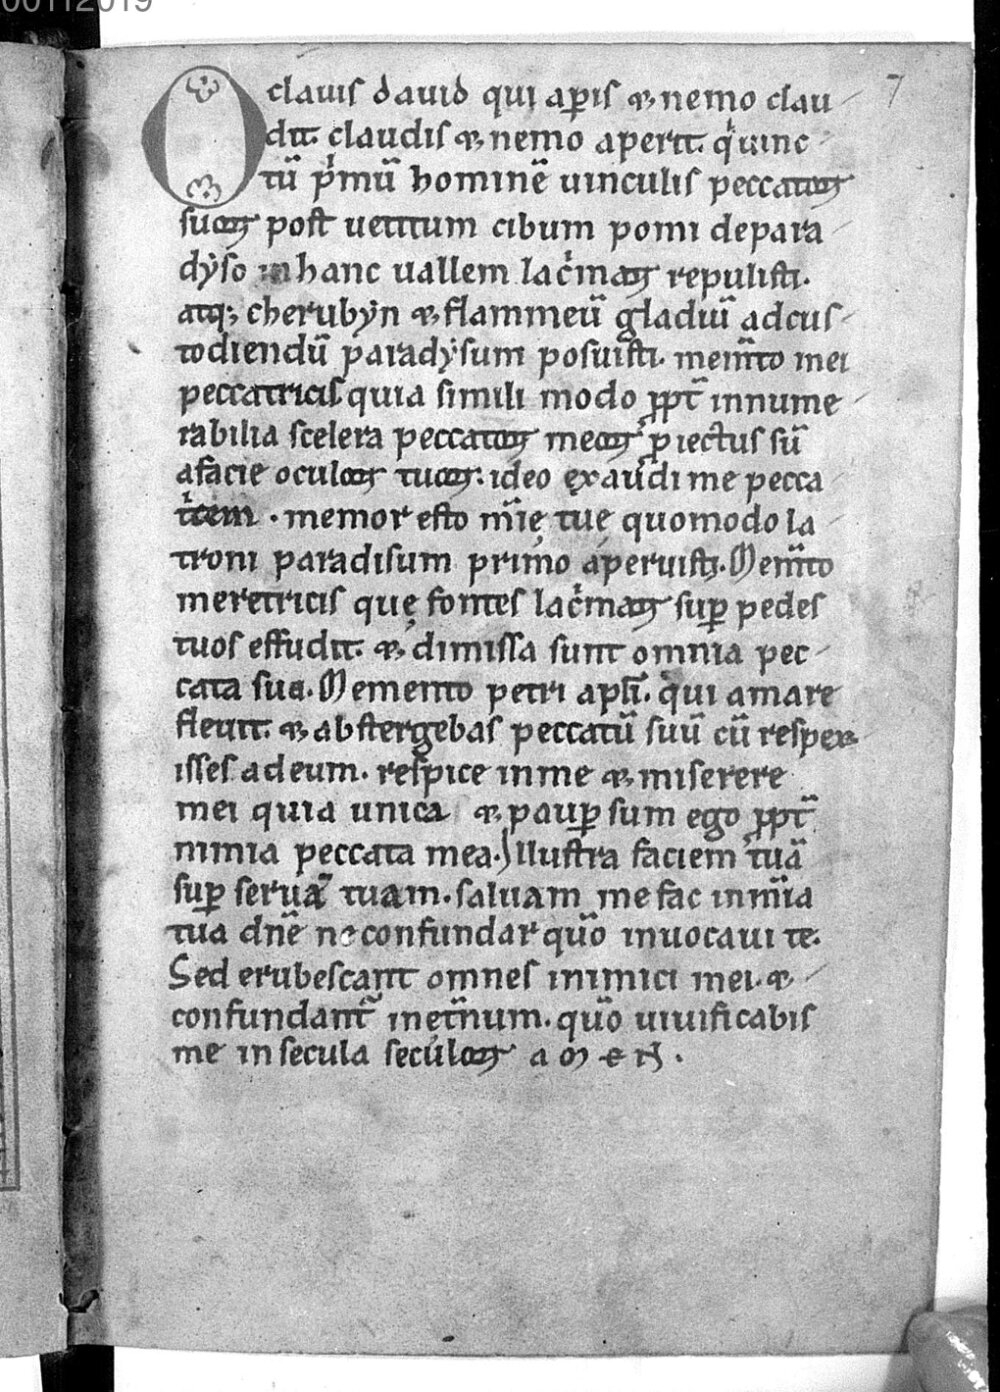 00112019
7
O clauis dauid qui ap̄is &, nemo clau
dit. claudis &, nemo aperit. qͥuinc
tū pͥmū hominē uinculis peccatoꝝ
suoꝝ post uetitum cibum pomi depara
dẏso in hanc uallem lacͥmaꝝ repulisti.
atq; cherubẏn &, flammeū gladiū adcus
todiendū paradẏsum posuisti. mem̄to mei
peccatricis quia simili modo ꝓpt̄ innume
rabilia scelera peccatoꝝ meoꝝ ꝓiectus sū
afacie oculoꝝ tuoꝝ. ideo ęxaudi me pecca
tͥcem. memor esto m̄ię tuę quomodo la
troni paradisum primo aperuisti. Mem̄to
meretricis quę fontes lacͥmaꝝ suꝑ pedes
tuos effudit. &, dimissa sunt omnia pec
cata sua. Memento petri apl̄i. qui amare
fleuit. &, abstergebas peccatū suū cū respex
isses adeum. respice inme &, miserere
mei quia unica &, pauꝑ sum ego ꝓpt̄
nimia peccata mea. Illustra faciem tuā
suꝑ seruā tuam. saluam me fac in m̄ia
tua dn̄e ne confundar qūo inuocaui te.
Sed erubescant omnes inimici mei. &
confundant̄ inet̄num. qūo uiuificabis
me in secula seculoꝝ amen.